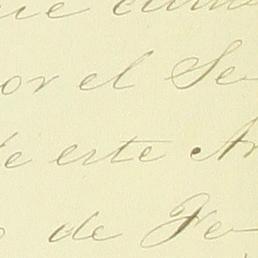 que
or el Se
de este Ar
de Fe